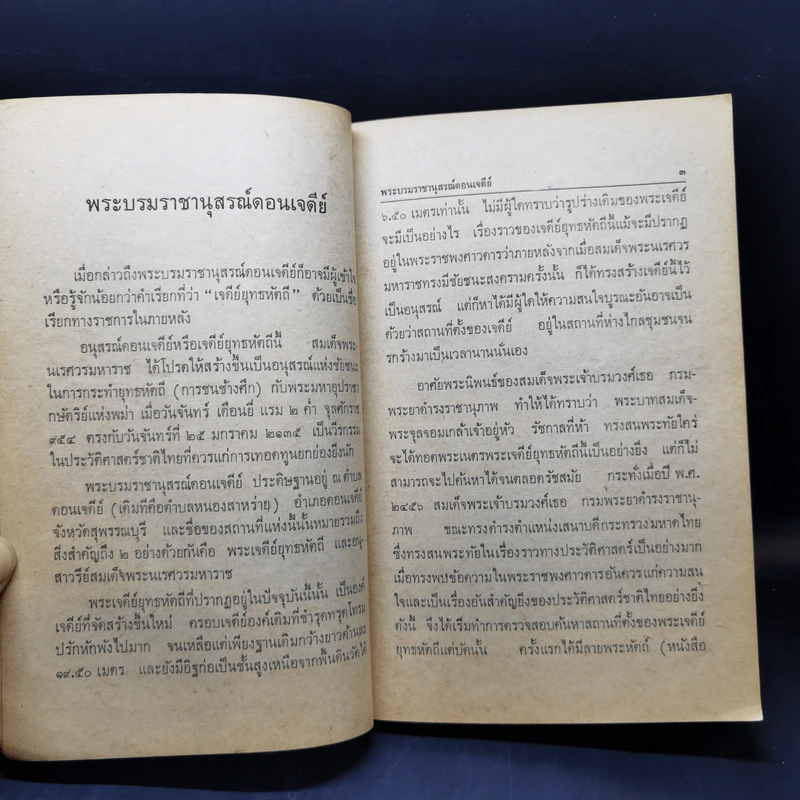 พระบรมราชานุสรณ์ดอนเจดีย์
เมื่อกล่าวถึงพระบรมราชานุสรณ์ดอนเจดีย์ก็อาจมีผู้เข้าใจ
หรือรู้จักน้อยกว่าคำเรียกที่ว่า “เจดีย์ยุทธหัตถี” ด้วยเป็นชื่อ
เรียกทางราชการในภายหลัง
อนุสรณ์ดอนเจดีย์หรือเจดีย์ยุทธหัตถีนี้ สมเด็จพระ-
นเรศวรมหาราช ได้โปรดให้สร้างขึ้นเป็นอนุสรณ์แห่งชัยชนะ
ในการกระทำยุทธหัตถี (การชนช้างศึก) กับพระมหาอุปราชา
กษัตริย์แห่งพม่า เมื่อวันจันทร์ เดือนยี่ แรม ๒ ค่ำ จุลศักราช
๙๕๔ ตรงกับวันจันทร์ที่ ๒๕ มกราคม ๒๑๓๕ เป็นวีรกรรม
ในประวัติศาสตร์ชาติไทยที่ควรแก่การเทอดทูนยกย่องยิ่งนัก
พระบรมราชานุสรณ์ดอนเจดีย์ ประดิษฐานอยู่ ณ ตำบล
ดอนเจดีย์ (เดิมที่คือตำบลหนองสาหร่าย) อำเภอดอนเจดีย์
จังหวัดสุพรรณบุรี และชื่อของสถานที่แห่งนี้นั้นหมายรวมถึง
สิ่งสำคัญถึง ๒ อย่างด้วยกันคือ พระเจดีย์ยุทธหัตถี และอนุ-
สาวรีย์สมเด็จพระนเรศวรมหาราช
พระเจดีย์ยุทธหัตถีที่ปรากฏอยู่ในปัจจุบันนี้นั้น เป็นองค์
เจดีย์ที่จัดสร้างขึ้นใหม่ ครอบเจดีย์องค์เดิมที่ชำรุดทรุดโทรม
ปรักหักพังไปมาก จนเหลือแต่เพียงฐานเดิมกว้างยาวด้านละ
๑๙.๕๐ เมตร และยังมีอิฐก่อเป็นชั้นสูงเหนือจากพื้นดินวัดได้
พระบรมราชานุสรณ์ดอนเจดีย์ ๓
๖.๕๐ เมตรเท่านั้น ไม่มีผู้ใดทราบว่ารูปร่างเดิมของพระเจดีย์
จะมีเป็นอย่างไร เรื่องราวของเจดีย์ยุทธหัตถีนี้แม้จะมีปรากฏ
อยู่ในพระราชพงศาวดารว่าภายหลังจากเมื่อสมเด็จพระนเรศวร
มหาราชทรงมีชัยชนะสงครามครั้งนั้น ก็ได้ทรงสร้างเจดีย์นี้ไว้
เป็นอนุสรณ์ แต่ก็หาได้มีผู้ใดให้ความสนใจบูรณะอันอาจเป็น
ด้วยว่าสถานที่ตั้งของเจดีย์ อยู่ในสถานที่ห่างไกลชุมชนจน
รกร้างมาเป็นเวลานานนั่นเอง
อาศัยพระนิพนธ์ของสมเด็จพระเจ้าบรมวงศ์เธอ กรม-
พระยาดำรงราชานุภาพ ทำให้ได้ทราบว่า พระบาทสมเด็จ-
พระจุลจอมเกล้าเจ้าอยู่หัว รัชกาลที่ห้า ทรงสนพระทัยใคร่
จะได้ทอดพระเนตรพระเจดีย์ยุทธหัตถีนี้เป็นอย่างยิ่ง แต่ก็ไม่
สามารถจะไปค้นหาได้จนตลอดรัชสมัย กระทั่งเมื่อปี พ.ศ.
๒๔๕๖ สมเด็จพระเจ้าบรมวงศ์เธอ กรมพระยาดำรงราชานุ-
ภาพ ขณะทรงดำรงตำแหน่งเสนาบดีกระทรวงมหาดไทย
ซึ่งทรงสนพระทัยในเรื่องราวทางประวัติศาสตร์เป็นอย่างมาก
เมื่อทรงพบข้อความในพระราชพงศาวดารอันควรแก่ความสน
ใจและเป็นเรื่องอันสำคัญยิ่งของประวัติศาสตร์ชาติไทยอย่างยิ่ง
ดังนี้ จึงได้เริ่มทำการตรวจสอบค้นหาสถานที่ตั้งของพระเจดีย์
ยุทธหัตถีแต่บัดนั้น ครั้งแรกได้มีลายพระหัตถ์ (หนังสือ